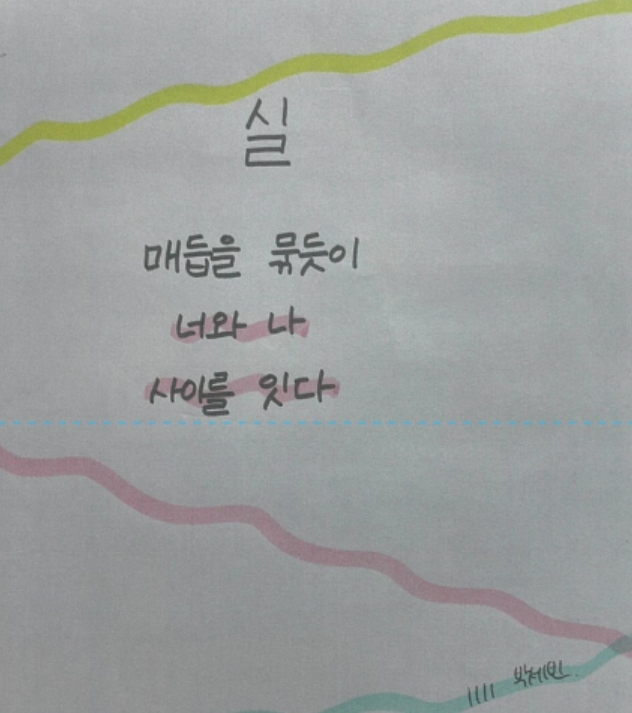 실
매듭을 묶듯이
너와 나
사이를 잇다
1111 박세빈